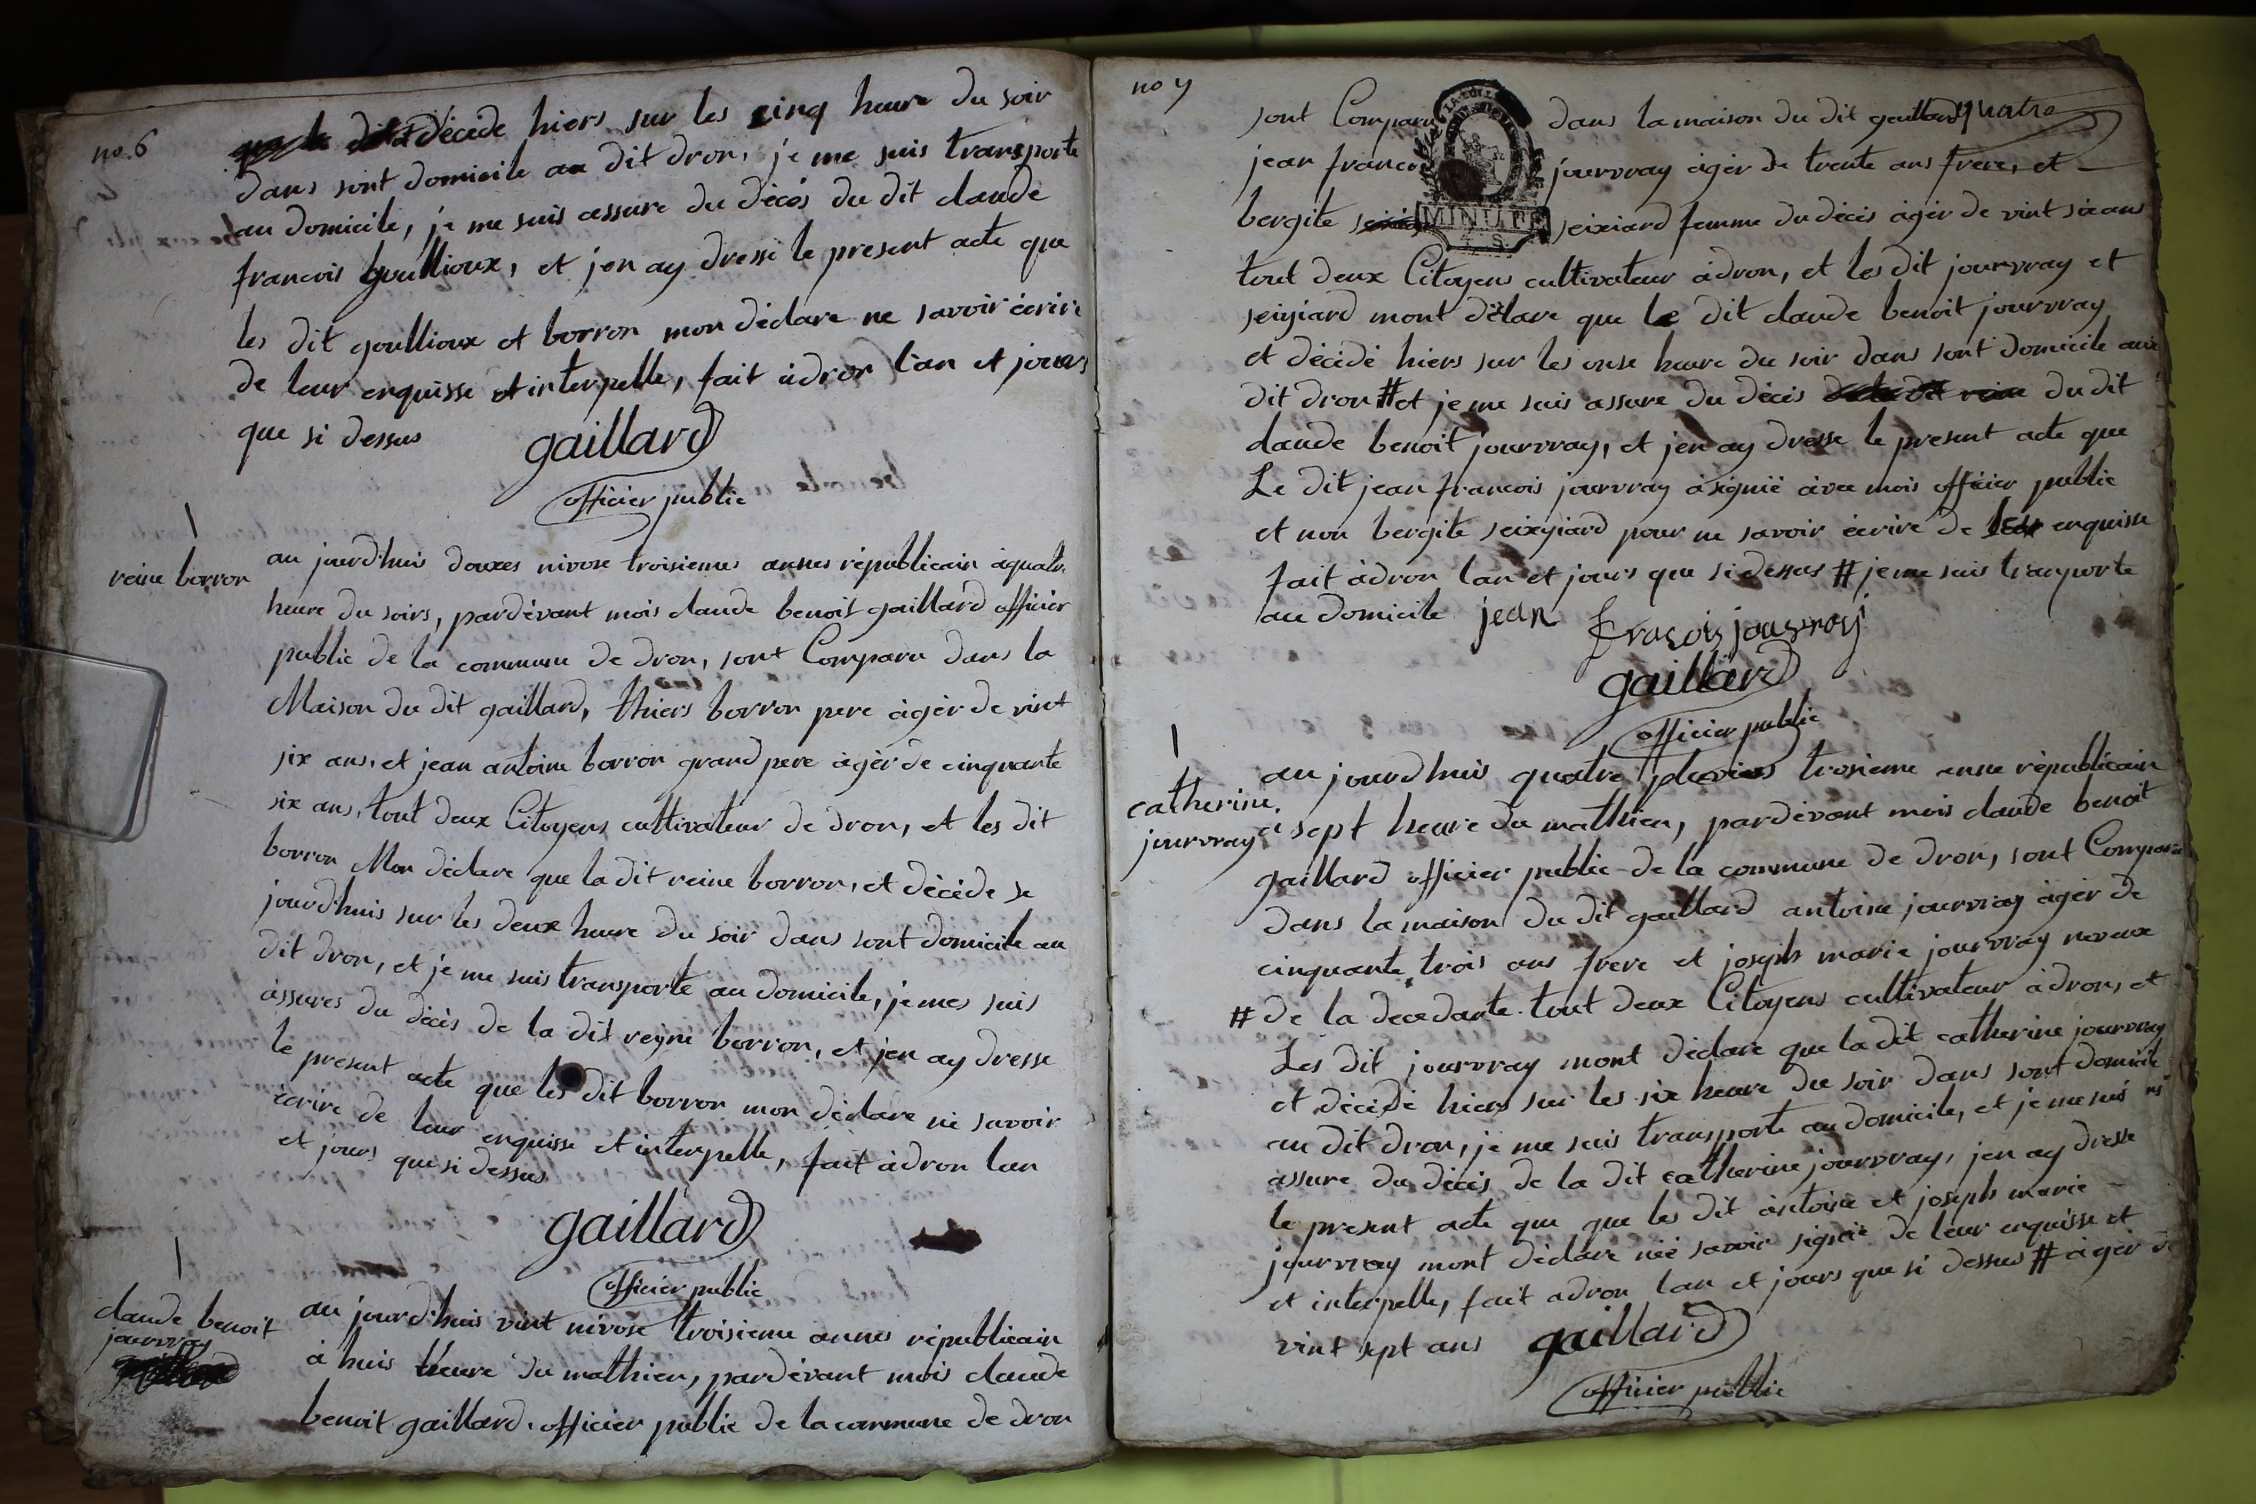 no. 6
décede hiers sur les cinq heure du soir
dans sont domicile au dit dron, je me suis transporte
au domicile, je me suis assure du décés du dit claude
francois goullioux, et jen ay dressé le present acte que
les dit goullioux et borron mon déclare ne savoir écrire
de leur enquisse et interpelle, fait à dron lan et jours
que si dessus
gaillard
officier public
reine borron
au jourd'huis douxes nivose troisiemes annes républicain à quatre
heure du soirs, pardévant mois claude benoit gaillard officier
public de la commune de dron, sont Comparu dans la
Maison du dit gaillard, thiers borron pere àgér de vint
six ans, et jean antoine borron grand pere àgér de cinquante
six ans, tout deux Citoyens cultivateur de dron, et les dit
borron Mon déclare que la dit reine borron, et décéde se
jourd'huis sur les deux heure du soir dans sont domicile au
dit dron, et je me suis transporte au domicile, je mes suis
assures du décés de la dit reyne borron, et jen ay dresse
le present acte que les dit borron mon déclare ne savoir
écrire de leur enquisse et interpelle, fait à dron lan
et jours que si dessus
gaillard
officier public
claude benoit
jourvray
au jourd'huis vint nivose troisieme annes républicain
à huis heure du mathieu, pardévant mois claude
benoit gaillard officier public de la commune de dron
no 7
sont Comparu dans la maison du dit gaillard quatre
jean francois jourvray àgér de trente ans frere, et
bergite seixiard femme du décés àgér de vint six ans
MINUTE
4 S
tout deux Citoyens cultivateur à dron, et les dit jourvray et
seixiard mont déclare que le dit claude benoit jourvray
et décédé hiers sur les onse heure du soir dans sont domicile au
dit dron # et je me suis assure du décés du dit
claude benoit jourvray, et jen ay dresse le present acte que
Le dit jean francois jourvray à signié àvec mois officier public
et non bergite seixgiard pour ne savoir écrire de enquisse
fait à dron lan et jours que si dessus # je me suis tranporte
au domicile jean
francois jouvroy
gaillard
officier public
catherine
jourvray
au jourd'huis quatre pluvios trosieme anne républicain
à sept heure du mathieu, pardévant mois claude benoit
gaillard officier public de la commune de dron, sont Comparu
dans la maison du dit gaillard antoine jourvray àgér de
cinquante trois ans frere et joseph marie jourvray neveux
# de la decedante tout deux Citoyens cultivateur à dron, et
Les dit jourvray mont déclare que la dit catherine jourvray
et décédé hiers sur les six heure du soir dans sont domicile
au dit dron, je me suis transporte au domicile, et je me suis
assure du décés de la dit catherine jourvray, jen ay dresse
le present acte que que les dit antoine et joseph marie
jourvray mont déclare né savoir signié de leur enquisse et
et interpelle, fait a dron lan et jours que si dessus # àgér de
vint sept ans gaillard
officier public